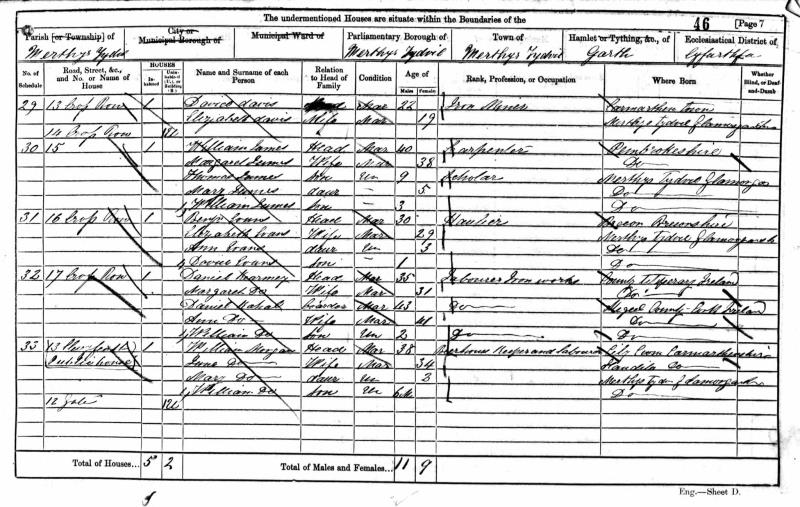 The undermentioned Houses are situate within the Boundaries of the
46 [Page 7
Parish [or Township] of Merthyr Tydvil
City or Municipal Borough of
Municipal Ward of
Parliamentary Borough of Merthyr Tydvil
Town of Merthyr Tydvil
Hamlet or Tything, &c., of Garth
Ecclesiastical District of Cyfarthfa
No. of Schedule
Road, Street, &c., and No. or Name of House
HOUSES
Inhabited
Uninhabited (U.), or Building (B.)
Name and Surname of each Person
Relation to Head of Family
Condition
Age of
Males Females
Rank, Profession, or Occupation
Where Born
Whether Blind, or Deaf-and-Dumb
29 13 Crop Row 1 David Davis Head Mar 22 Iron Miner Carmarthen Town
Elizabeth Davis Wife Mar 19 Merthyr Tydvil Glamorganshire
14 Crop Row 1U
30 15 1 William James Head Mar 40 Carpenter Pembrokeshire
Margaret James Wife Mar 38 Do
Thomas James Son Un 9 Scholar Merthyr Tydvil Glamorgan
Mary James daur — 5 Do
William James Son — 3 Do
31 16 Crop Row 1 Benjn Evans Head Mar 30 Haulier Brecon Breconshire
Elizabeth Evans Wife Mar 29 Merthyr Tydvil Glamorgansh
Ann Evans daur Un 3 Do
David Evans Son — 1 Do
32 17 Crop Row 1 Daniel Head Mar 35 Labourer Iron works County Tiperary Ireland
Margaret Do Wife Mar 31 Do
Daniel Boarder Mar 43 Do County Ireland
Ann Do Wife Mar 41 Do
William Do Son Un 2 Do Do
33 13 (Public house) 1 William Morgan Head Mar 38 Beerhouse Keeper and Labourer Carmarthenshire
Jane Do Wife Mar 34 Llandilo Do
Mary Do daur Un 3 Merthyr Tydvil Glamorgansh
William Do Son Un 6M Do
12 1U
Total of Houses... 5 2
Total of Males and Females... 11 9
Eng.—Sheet D.